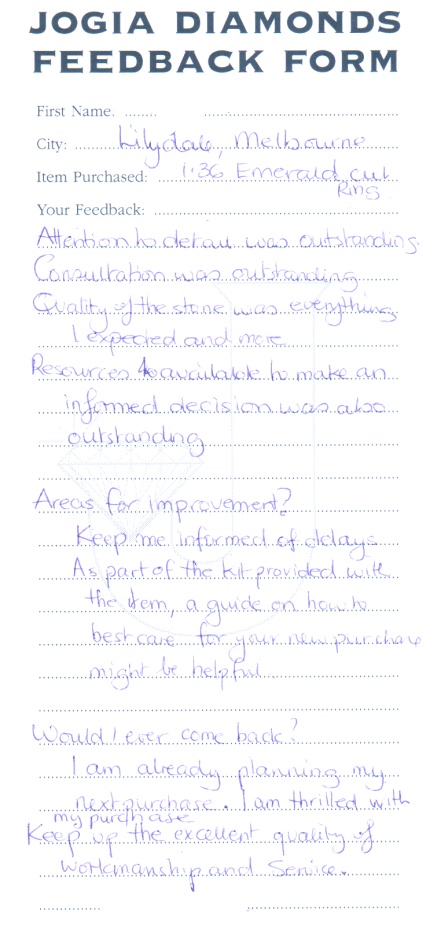 JOGIA DIAMONDS
FEEDBACK FORM
First Name:
City: Lilydale, Melbourne
Item Purchased: 1.36 Emerald cut
Ring
Your Feedback:
Attention to detail was outstanding.
Consultation was outstanding
Quality of the stone was everything
I expected and more
Resources available to make an
informed decision was also
outstanding
Areas for improvement?
Keep me informed of delays
As part of the kit provided with
the item, a guide on how to
best care for your new purchase
might be helpful
Would I ever come back?
I am already planning my
next purchase. I am thrilled with
my purchase
Keep up the excellent quality of
workmanship and service.